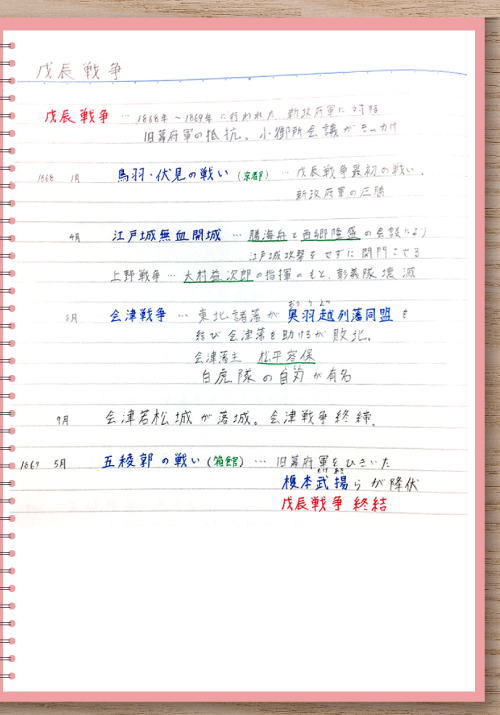 戊辰戦争
戊辰戦争 … 1868年～1869年に行われた、新政府軍に対する
旧幕府軍の抵抗。小御所会議がきっかけ
1868 1月 鳥羽・伏見の戦い (京都) … 戊辰戦争最初の戦い。
新政府軍の圧勝
4月 江戸城無血開城 … 勝海舟と西郷隆盛の会談により
江戸城攻撃をせずに開門させる
上野戦争 … 大村益次郎の指揮のもと、彰義隊壊滅
会津戦争 … 東北諸藩が 奥羽越列藩同盟を
結び会津藩を助けるが敗北。
会津藩主 松平容保
白虎隊の自刃が有名
9月 会津若松城が落城。会津戦争終結。
1869 5月 五稜郭の戦い (箱館) … 旧幕府軍をひきいた
榎本武揚らが降伏
戊辰戦争終結